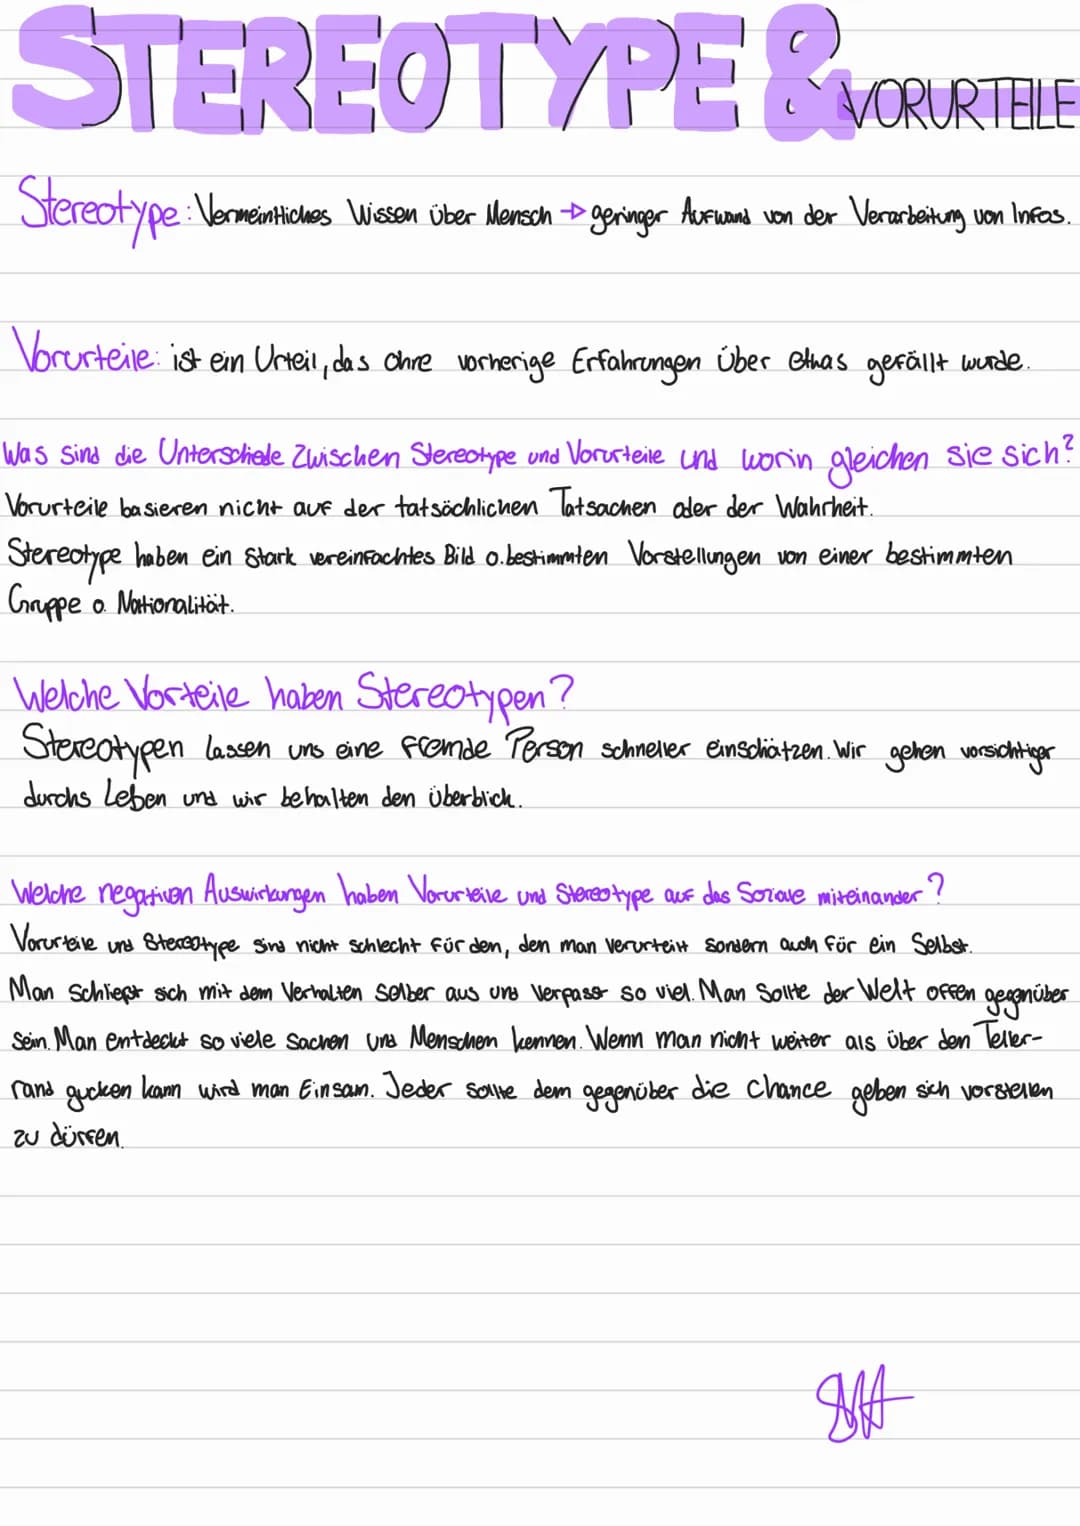 STEREOTYPE & VORURTEILE
Stereotype: Vermeintliches Wissen über Mensch → geringer Aufwand von der Verarbeitung von Infos.
Vorurteile: ist ein Urteil, das ohne vorherige Erfahrungen über etwas gefällt wurde.
Was sind die Unterschiede zwischen Stereotype und Vorurteile und worin gleichen sie sich?
Vorurteile basieren nicht auf der tatsächlichen Tatsachen oder der Wahrheit.
Stereotype haben ein stark vereinfachtes Bild o. bestimmten Vorstellungen von einer bestimmten
Gruppe o. Nationalität.
Welche Vorteile haben Stereotypen?
Stereotypen lassen uns eine fremde Person schneller einschätzen. Wir gehen vorsichtiger
durchs Leben und wir behalten den überblick.
Welche negativen Auswirkungen haben Vorurteile und Stereotype auf das Soziale miteinander?
Vorurteile und Stereotype sind nicht schlecht für den, den man verurteilt sondern auch für ein Selbst.
Man schließt sich mit dem Verhalten selber aus und verpasst so viel. Man sollte der Welt offen gegenüber
sein. Man entdeckt so viele sachen und Menschen kennen. Wenn man nicht weiter als über den Teller-
rand gucken kann wird man Einsam. Jeder sollte dem gegenüber die Chance geben sich vorstellen
zu dürfen.